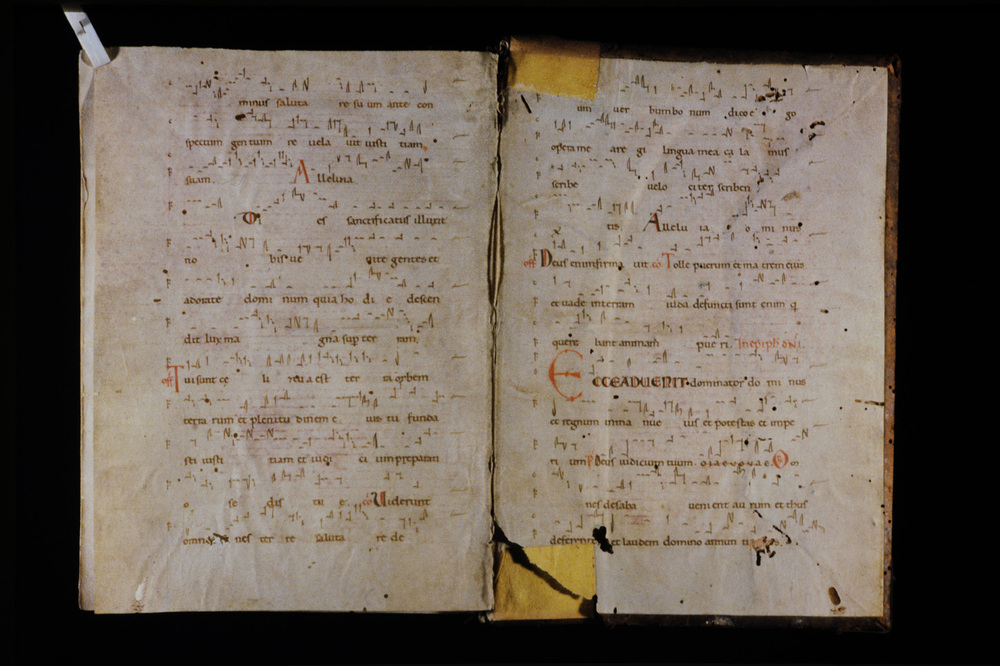 minus saluta re su um ante con
spectum gen tium re uela uit iusti tiam
suam. Alleluia
Di es sanctificatus illuxit
no bis ue nite gentes et
adorate domi num quia ho di e descen
dit lux ma gna sup ter ram.
off Tui sunt ce li et tua est ter ra orbem
terra rum et plenitu dinem e ius tu funda
sti iusti tiam et iudi ci um preparati
o se dis tu e co Uiderunt
omnes fi nes ter re saluta re de
um uer bum bo num dico e go
opera me a re gi lingua mea ca la mus
scribe uelo citer scriben
tis Allelu ia Do mi nus
off Deus enim firma uit co Tolle puerum et ma trem eius
et uade in terram iuda defuncti sunt enim q
quere bant animam pue ri. In epiphani
ECCE ADUENIT dominator do mi nus
et regnum in ma nue ius et potestas et impe
ri um P Deus iudicium tuum. o i a e u o u a e Om
nes de saba ueni ent au rum et thus
deferentes et laudem domino annun